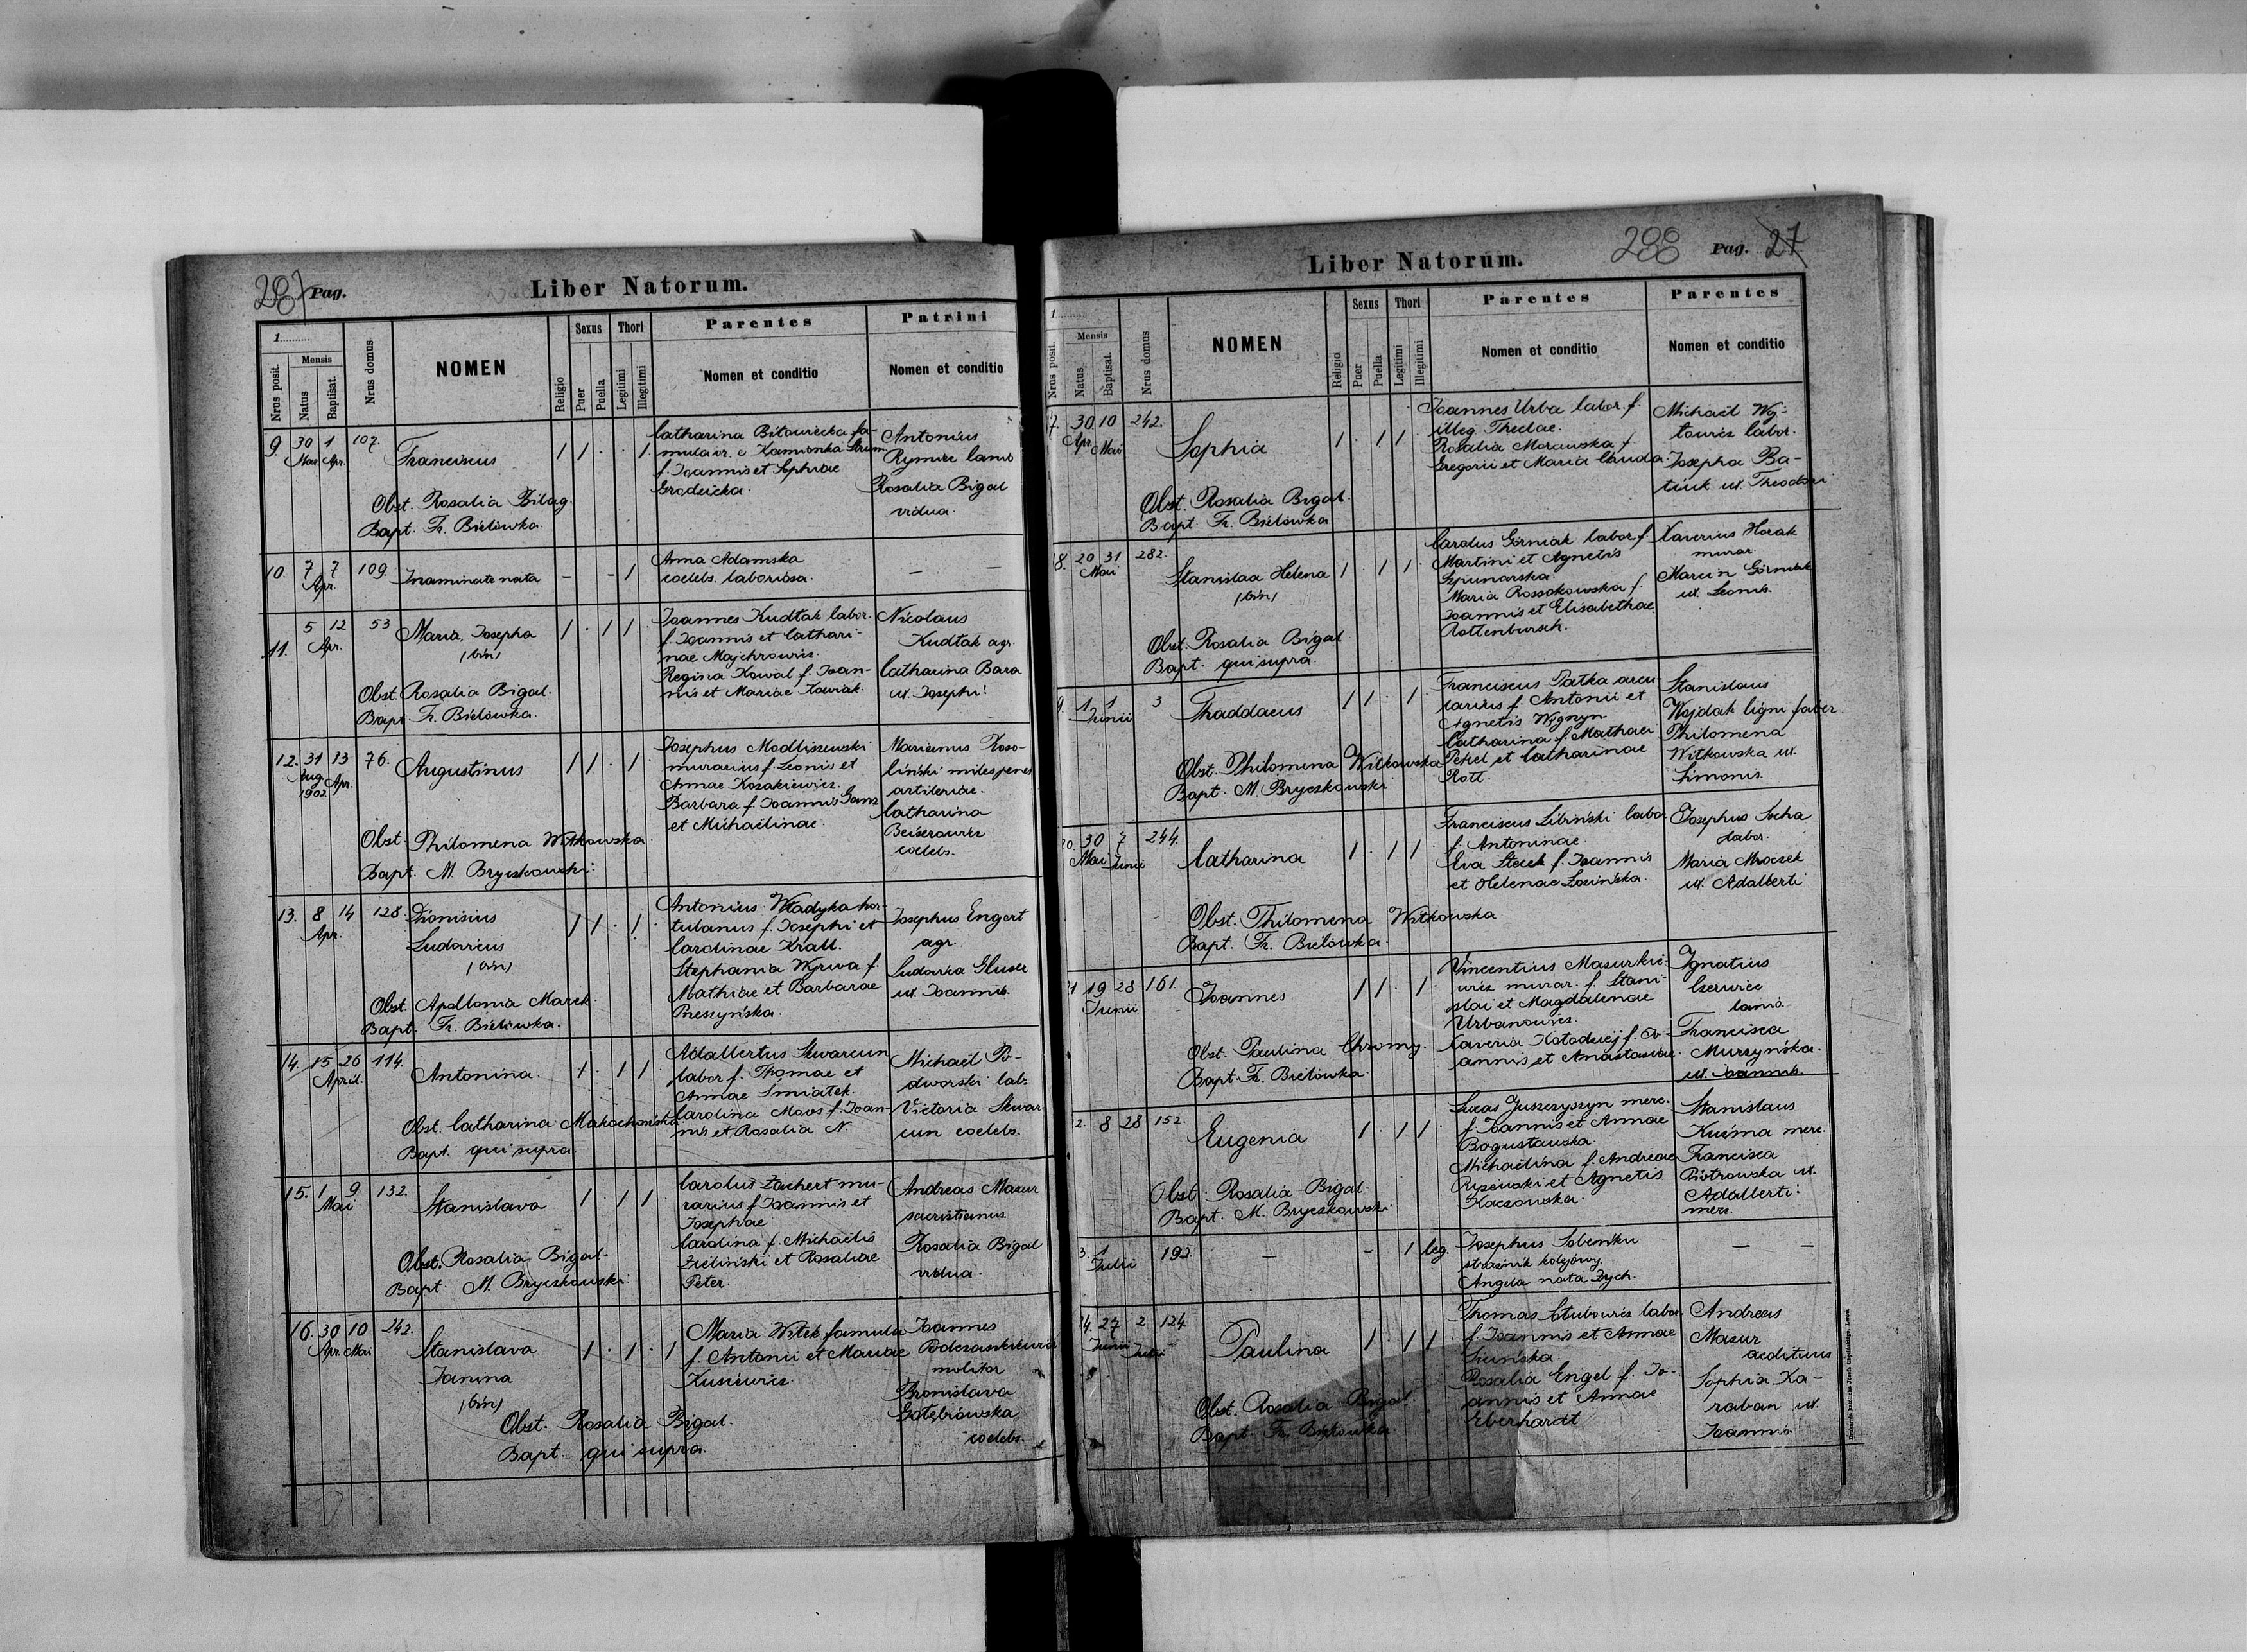 287 Pag.
Liber Natorum.
1.........
Mensis
Nrus posit.
Natus
Baptisat.
Nrus domus
NOMEN
Religio
Sexus
Puer
Puella
Thori
Legitimi
Illegitimi
Parentes
Nomen et conditio
Patrini
Nomen et conditio
9. 30 1 107.
Mar. Apr.
Franciscus
1 1 . . 1.
Catharina Bitourecka fa-
mula or. e Kamionka Strum
f. Joannis et Sophiae
Grodzicka.
Antonius
Rymize lanio
Rosalia Bigal
vidua.
Obst. Rosalia Bilag.
Bapt. Fr. Bielówka.
10. 7 7 109.
Apr.
Inaminate nata
- - 1
Anna Adamska
coelebs. laboriosa.
— —
11. 5 12 53
Apr.
Maria, Josepha
/bin/
1 . 1 1 .
Joannes Kudłak labor.
f. Joannis et Cathari-
nae Majchrowicz.
Regina Kowal f. Joan-
nis et Mariae Kawiak.
Nicolaus
Kudłak agr.
Catharina Bara
ux. Josephi.
Obst. Rosalia Bigal.
Bapt. Fr. Bielówka.
12. 31 13 76.
Aug. Apr.
1902
Augustinus
1 1 . 1 .
Josephus Modliszewski
murarius f. Leonis et
Annae Kozakiewicz.
Barbara f. Joannis Ganz
et Michaëlinae.
Marianus Roso-
liński miles penes
artileriae.
Catharina
Beiserowicz
coelebs.
Obst. Philomena Witkowska.
Bapt. M. Bryczkowski.
13. 8 14 128.
Apr.
Dionisius
Ludovicus
/bin/
1 1 . 1 .
Antonius Władyka hor-
tulanus f. Josephi et
Carolinae Krall.
Stephania Wyrwa f.
Mathiae et Barbarae
Preszyńska.
Josephus Engert
agr.
Ludovica Gluser
ux. Joannis.
Obst. Apollonia Marek.
Bapt. Fr. Bielówka.
14. 15 26 114.
April.
Antonina.
1 . 1 1 .
Adalbertus Skwarcun
labor f. Thomae et
Annae Smiatek.
Carolina Moos f. Joan-
nis et Rosalia N.
Michaël Po-
dworski lab.
Victoria Skwar-
cun coelebs.
Obst. Catharina Makochońska.
Bapt. qui supra
15. 1 9 132.
Mai
Stanislava
1 . 1 1 .
Carolus Zachert mu-
rarius f. Joannis et
Josephae
Carolina f. Michaëlis
Zieliński et Rosaliae
Peter.
Andreas Mazur
sacristianus
Rosalia Bigal
vidua.
Obst. Rosalia Bigal.
Bapt. M. Bryczkowski.
16. 30 10 242.
Apr. Mai
Stanislava
Janina
/bin/
1 . 1 . 1
Maria Witek famula
f. Antonii et Mariae
Kusiewicz.
Joannes
molitor
Bronislava
Gołębiowska
coelebs.
Obst. Rosalia Bigal.
Bapt. qui supra.
Liber Natorum.
288 Pag. 27
1.........
Mensis
Nrus posit.
Natus
Baptisat.
Nrus domus
NOMEN
Religio
Sexus
Puer
Puella
Thori
Legitimi
Illegitimi
Parentes
Nomen et conditio
Parentes
Nomen et conditio
7. 30 10 242.
Apr. Mai
Sophia
1 . 1 1 .
Joannes Urba labor. f.
illeg. Theclae.
Rosalia Morawska f.
Gregorii et Maria Chuda.
Michaël Woj-
towicz labor.
Josepha Ba-
tiuk ux. Theodori
Obst. Rosalia Bigal.
Bapt. Fr. Bielówka
8. 20 31 282.
Mai
Stanislaa Helena
/bin/
1 . 1 1 .
Carolus Górniak labor f.
Martini et Agnetis
Szpunarska.
Maria Rossokowska f.
Joannis et Elisabethae
Rottenbursch.
Xaverius Horak
murar.
Marcin Górniak
ux. Leonis.
Obst. Rosalia Bigal
Bapt. qui supra.
9. 1 1 3
Junii
Thaddaeus
1 1 . 1 .
Franciscus Patka arcu-
larius f. Antonii et
Agnetis Wygnyn
Catharina f. Mathaei
Petzel et Catharinae
Rott.
Stanislaus
Wojdak ligni faber.
Philomena
Witkowska ux.
Simonis.
Obst. Philomena Witkowska
Bapt. M. Bryczkowski
20. 30 7 244.
Mai Junii
Catharina
1 . 1 1 .
Franciscus Libiński labor
f. Antoninae.
Eva Steck f. Joannis
et Helenae Łosińska.
Josephus Socha
labor.
Maria Mroczek
ux. Adalberti
Obst. Philomena Witkowska
Bapt. Fr. Bielówka.
21. 19 28 161.
Junii
Joannes
1 1 . 1 .
Vincentius Mazurkie-
wicz murar. f. Stani-
slai et Magdalenae
Urbanowicz.
Xaveria Kołodziej f. Jo-
annis et Anastasiae.
Ignatius
Czerwiec
lanio.
Francisca
Murzyńska.
ux. Joannis.
Obst. Paulina Chromy.
Bapt. Fr. Bielówka.
2. 8 28 152.
Eugenia
1 . 1 1 .
Lucas Juszczyszyn merc.
f. Joannis et Annae
Bogusławska.
Michaëlina f. Andreae
Ryzewski et Agnetis
Kaczowska.
Stanislaus
Kuźma merc.
Francisca
Piotrowska ux.
Adalberti.
merc.
Obst. Rosalia Bigal.
Bapt. M. Bryczkowski
3. 1 192.
Julii
— - 1 leg.
Josephus Sobenku
strażnik kolejowy.
Angela nata Zych.
— —
24. 27 2 124.
Junii Julii
Paulina
1 . 1 1 .
Thomas Stubowicz labor.
f. Joannis et Annae
Rosalia Engel f. Jo-
annis et Annae
Eberhardt
Andreas
Mazur
aedituus
Sophia Ka-
raban ux.
Joannis
Obst. Rosalia Bigal.
Bapt. Fr. Bielówka